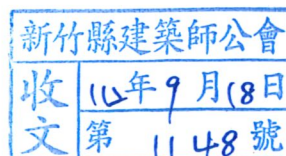 新竹縣建築師公會
收文
112年9月18日
第1148號